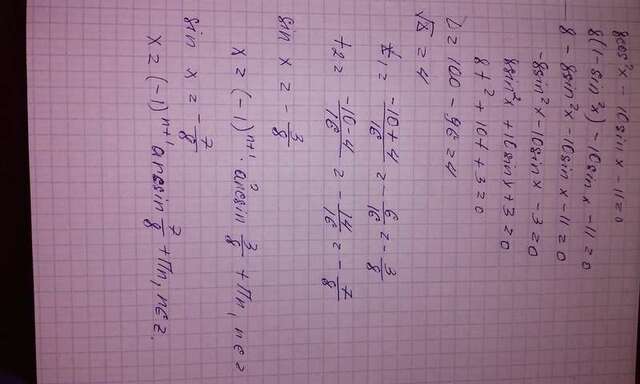 8cos²x - 10sinx - 11 = 0
8(1 - sin²x) - 10sinx - 11 = 0
8 - 8sin²x - 10sinx - 11 = 0
-8sin²x - 10sinx - 3 = 0
8sin²x + 10sinx + 3 = 0
8t² + 10t + 3 = 0
D = 100 - 96 = 4
√D = 4
t₁ = (-10+4)/16 = -6/16 = -3/8
t₂ = (-10-4)/16 = -14/16 = -7/8
sin x = -3/8
x = (-1)ⁿ⁺¹ · arcsin 3/8 + πn, n∈z
sin x = -7/8
x = (-1)ⁿ⁺¹ arcsin 7/8 + πn, n∈z.